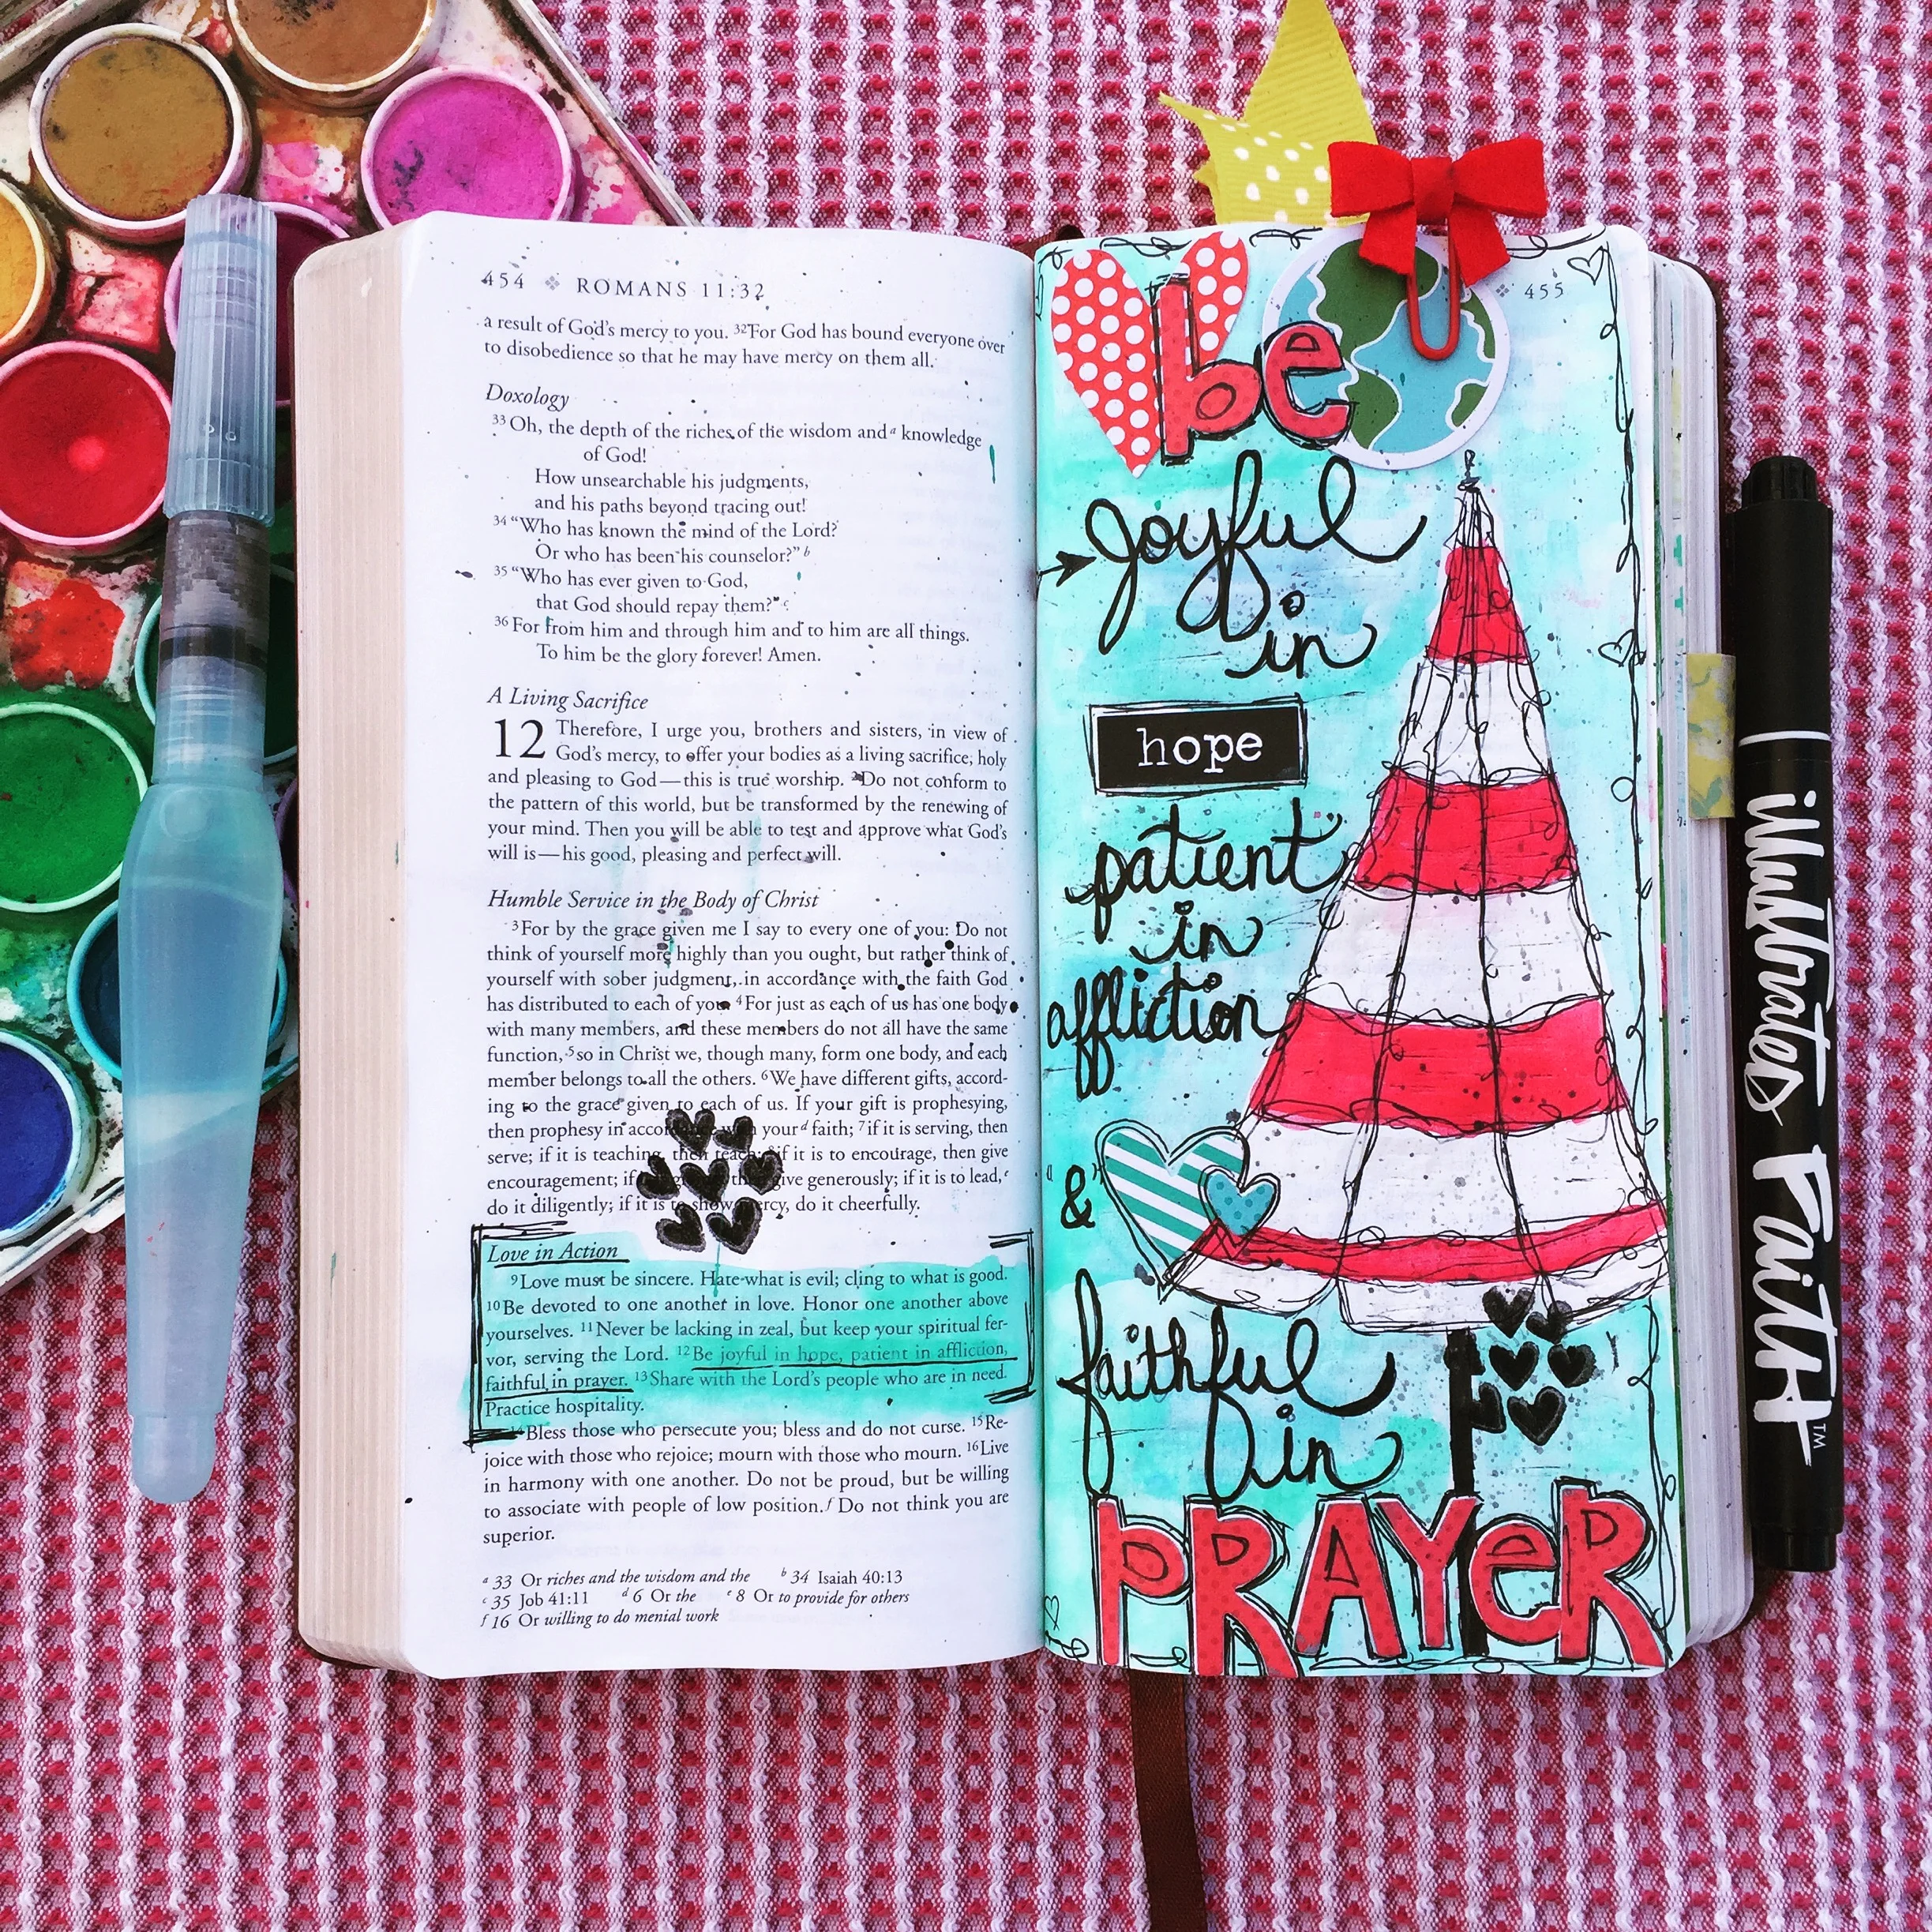 454 ROMANS 11:32
a result of God's mercy to you. 32For God has bound everyone over
to disobedience so that he may have mercy on them all.
Doxology
33 Oh, the depth of the riches of the wisdom and a knowledge
of God!
How unsearchable his judgments,
and his paths beyond tracing out!
34 "Who has known the mind of the Lord?
Or who has been his counselor?" b
35 "Who has ever given to God,
that God should repay them?" c
36 For from him and through him and to him are all things.
To him be the glory forever! Amen.
A Living Sacrifice
12 Therefore, I urge you, brothers and sisters, in view of
God's mercy, to offer your bodies as a living sacrifice, holy
and pleasing to God—this is true worship. 2Do not conform to
the pattern of this world, but be transformed by the renewing of
your mind. Then you will be able to test and approve what God's
will is—his good, pleasing and perfect will.
Humble Service in the Body of Christ
3For by the grace given me I say to every one of you: Do not
think of yourself more highly than you ought, but rather think of
yourself with sober judgment, in accordance with the faith God
has distributed to each of you. 4For just as each of us has one body
with many members, and these members do not all have the same
function, 5so in Christ we, though many, form one body, and each
member belongs to all the others. 6We have different gifts, accord-
ing to the grace given to each of us. If your gift is prophesying,
then prophesy in with your d faith; 7if it is serving, then
serve; if it is teaching, then teach; 8if it is to encourage, then give
encouragement; if give generously; if it is to lead, e
do it diligently; if it is to show mercy, do it cheerfully.
Love in Action
9Love must be sincere. Hate what is evil; cling to what is good.
10Be devoted to one another in love. Honor one another above
yourselves. 11Never be lacking in zeal, but keep your spiritual fer-
vor, serving the Lord. 12Be joyful in hope, patient in affliction,
faithful in prayer. 13Share with the Lord's people who are in need.
Practice hospitality.
14Bless those who persecute you; bless and do not curse. 15Re-
joice with those who rejoice; mourn with those who mourn. 16Live
in harmony with one another. Do not be proud, but be willing
to associate with people of low position. f Do not think you are
superior.
a 33 Or riches and the wisdom and the b 34 Isaiah 40:13
c 35 Job 41:11 d 6 Or the e 8 Or to provide for others
f 16 Or willing to do menial work
455
be
joyful
in
hope
patient
in
affliction
&
faithful
in
PRAYeR
illustrated FaitH™